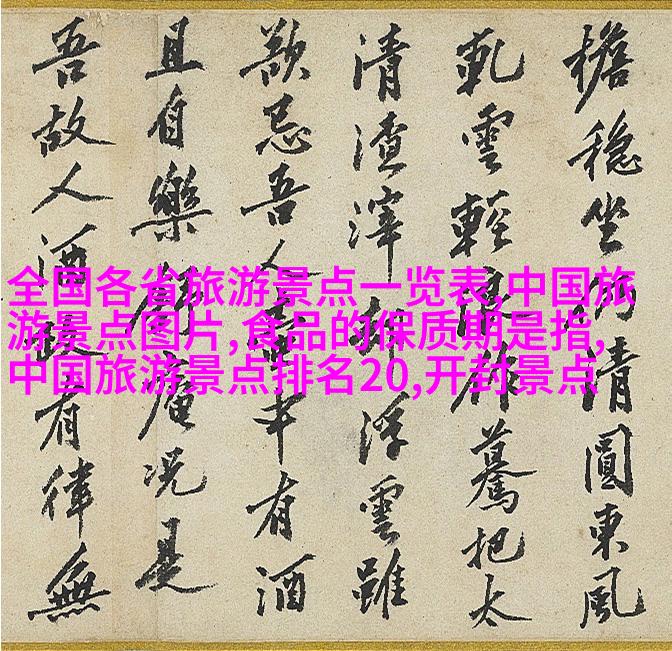 全国各省旅游景点一览表,中国旅
游景点图片,食品的保质期是指,
中国旅游景点排名20,开封景点
穩坐清圓東風
雲輕把太
清渣滓浮雲雖
忌吾人中有酒
且自樂庵況是
吾故人酒有律無